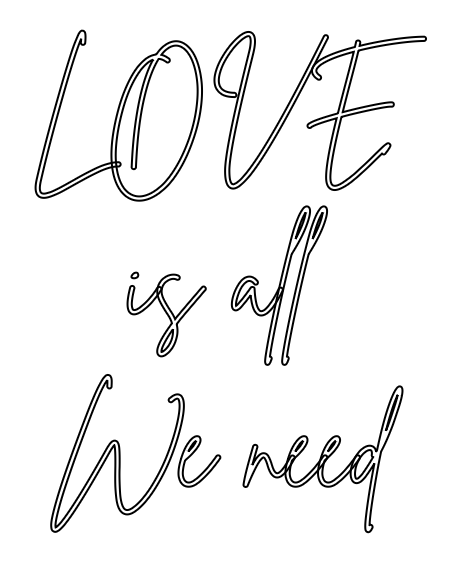 LOVE
is all
We need